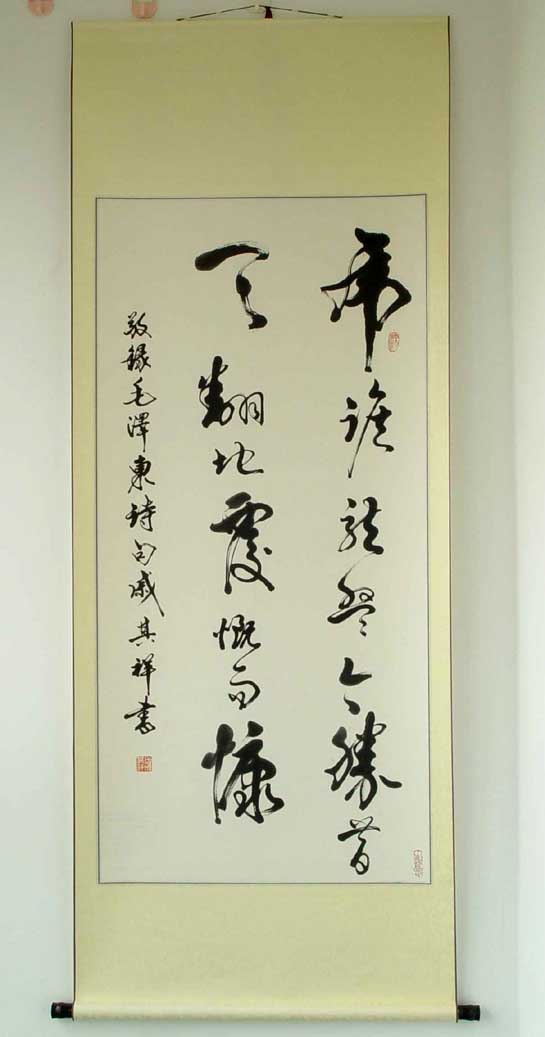 虎踞龍盤今勝昔
天翻地覆慨而慷
敬録毛澤東詩句戚其祥書